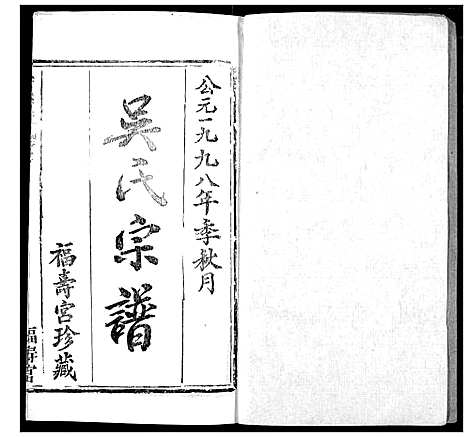 公元一九九八年季秋月
吴氏宗譜
福壽宮珍藏
福壽宮